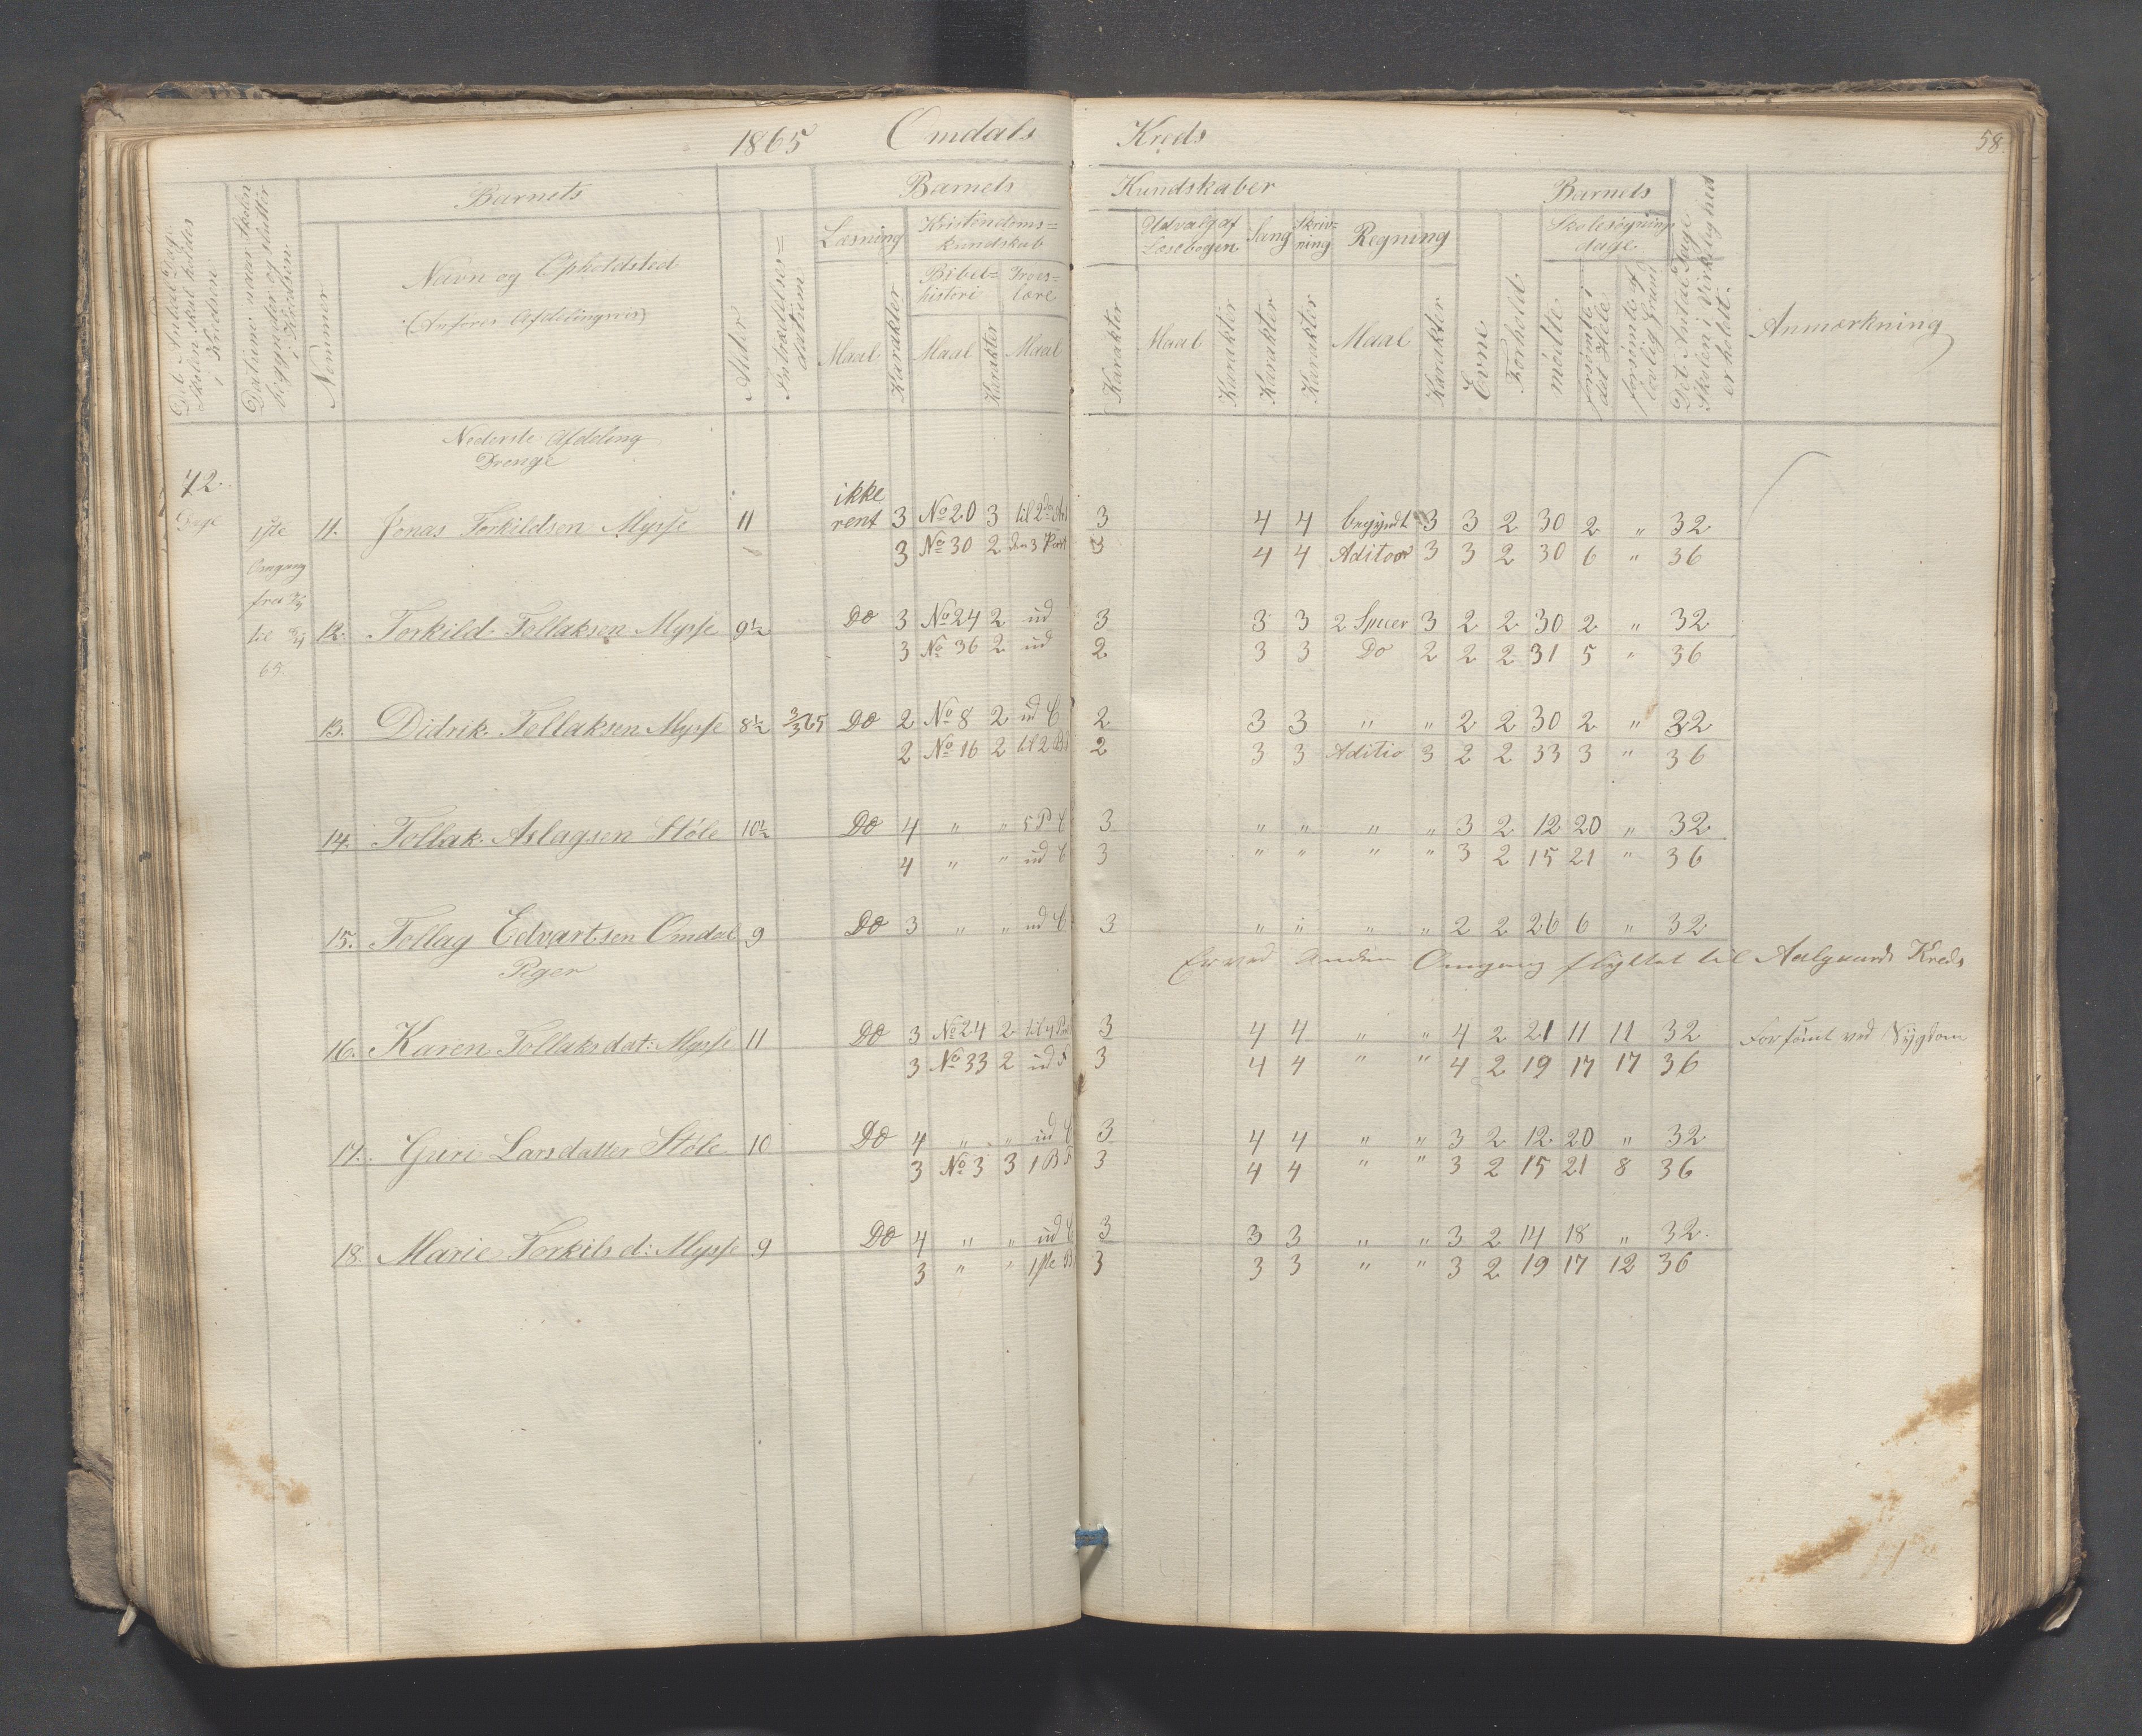 1865 Omdals Kreds 58.
Det Antal Dage Skolen skal holdes i Kredsen
Datum naar Skolen begynder og slutter i Kredsen
Nommer
Barnets
Navn og Opholdsted
(Anføres Afdelingsvis)
Alder
Indtrædelses= datum
Barnets Kundskaber
Læsning
Maal
Karakter
Kristendoms= kundskab
Bibel= histori
Maal
Karakter
Troes= lære
Maal
Karakter
Udvalg af Læsebogen
Maal
Karakter
Sang
Karakter
Skriv= ning
Karakter
Regning
Maal
Karakter
Barnets
Evne
Forhold
Skolesøgnings dage
mödte
forsömte i det Hele
forsömte af lovlig Grund
Det Antal Dage Skolen i Virkelighed er holdt.
Anmærkning
Nederste Afdeling
Drenge
72.
Dage
1ste
Omgang
fra
til
65.
11. Jonas Torkildsen Mysse 11 ikke rent 3 No 20 3 til 2den Art 3 4 4 begyndt 3 3 2 30 2 " 32
3 No 30 2 den 3 Part 3 4 4 Aditoor 3 3 2 30 6 " 36
12. Torkild Tollaksen Mysse 9½ Do 3 No 24 2 ud 3 3 3 2 Speer 3 2 2 30 2 " 32
3 No 36 2 ud 2 3 3 Do 2 2 2 31 5 " 36
13. Didrik Tollaksen Mysse 8½ 3/3 65 Do 2 No 8 2 ud C 2 3 3 " " 2 2 30 2 " 32
2 No 16 2 til 2 B 2 3 3 Aditio 3 2 2 33 3 " 36
14. Tollak Aslagsen Støle 10½ Do 4 " " 5 P C 3 " " " " 3 2 12 20 " 32
4 " " ud C 3 " " " " 3 2 15 21 " 36
15. Tollag Edvartsen Omdal 9 Do 3 " " ud C 3 " " " " 2 2 26 6 " 32
Er ved Anden Omgang flyttet til Aalgaards Kreds
Piger
16. Karen Tollaksdat: Mysse 11 Do 3 No 24 2 til 4 Part 3 4 4 " " 4 2 21 11 11 32 Forsömt ved Sygdom
3 No 33 2 ud 3 4 4 " " 4 2 19 17 17 36
17. Guri Larsdatter Støle 10 Do 4 " " ud C 3 4 4 " " 3 2 12 20 " 32
3 No 3 3 1 B 3 4 4 " " 3 2 15 21 8 36
18. Marie Torkilsd: Mysse 9 Do 4 " " ud C 3 3 3 " " 3 2 14 18 " 32.
3 " " 1ste B 3 3 3 " " 3 2 19 17 12 36